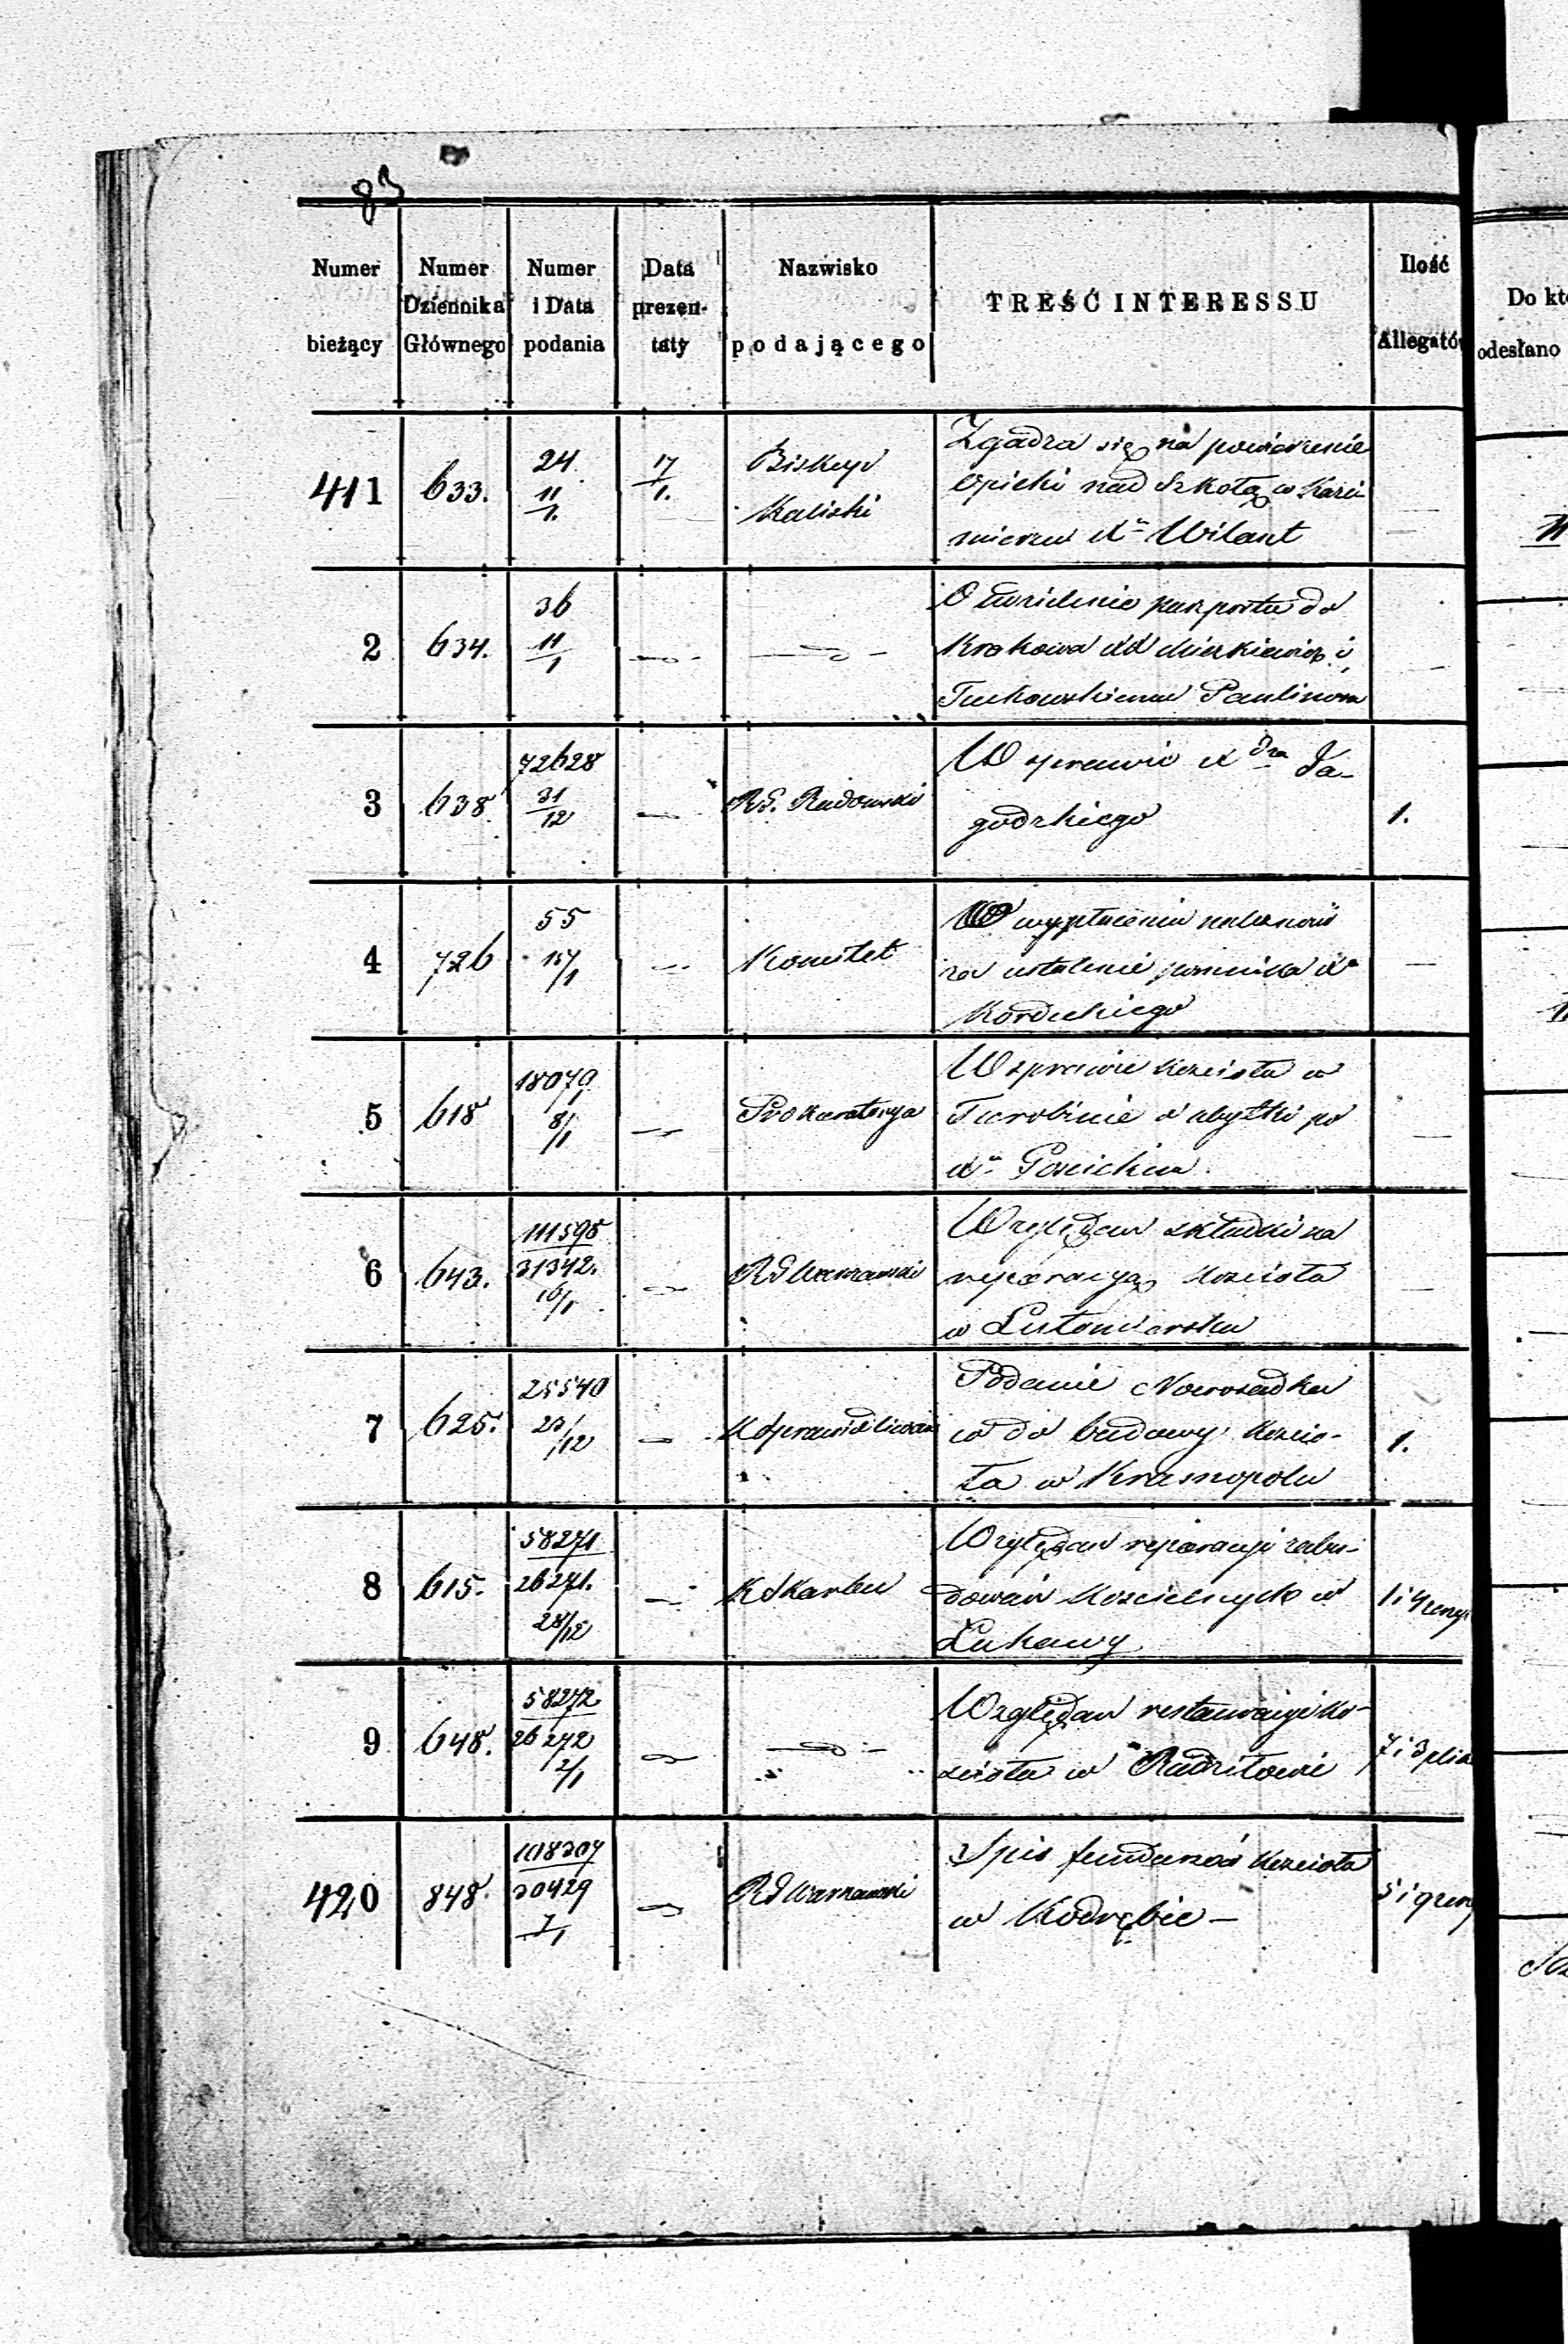 83
Numer bieżący
Numer Dziennika Głównego
Numer i Data podania
Data prezentaty
Nazwisko podającego
TREŚĆ INTERESSU
Ilość Allegatów
Do kt
odesłano
411 633. 24 11/1. 17/1. Biskup Kaliski
Zgadza się na powierzenie
Opieki nad Szkołą w Kazi-
mierzu Xu Wilant
2 634. 36 11/1
O udzielenie paszportu do
Krakowa XX i
Tuchowskiemu Paulinom
3 638 72628 31/12 RG. Radomski
W sprawie X dza Ja-
godzkiego
1.
4 726 55 15/1 Komitet
wypłacenia
za ustalenie pomnika Xa
Kordeckiego
5 618 18079 8/1 Prokuratorya
W sprawie Kościoła w
Turobinie o zbytki po
Xu
6 643. 111595 31342. 10/1 RG Warszawski
Względem składki na
reparacyą Kościoła
w Lutomiersku
7 625. 25540 23/12 K Sprawiedliwości
Podanie Nowosadka
co do budowy Kościo-
ła w Krasnopolu
1.
8 615. 58271 26271. 28/12 K Skarbu
Względem reparacyi zabu-
dowań Kościelnych w
Łukawy
1 i 4
9 648. 58272 26272 12/1
Względem restauracyi Ko-
ścioła w Radziłowie
7 i 3
420 848. 108307 30429 7/1 RG Warszawski
Spis funduszów Kościoła
w Kodrębie –
5 i 9